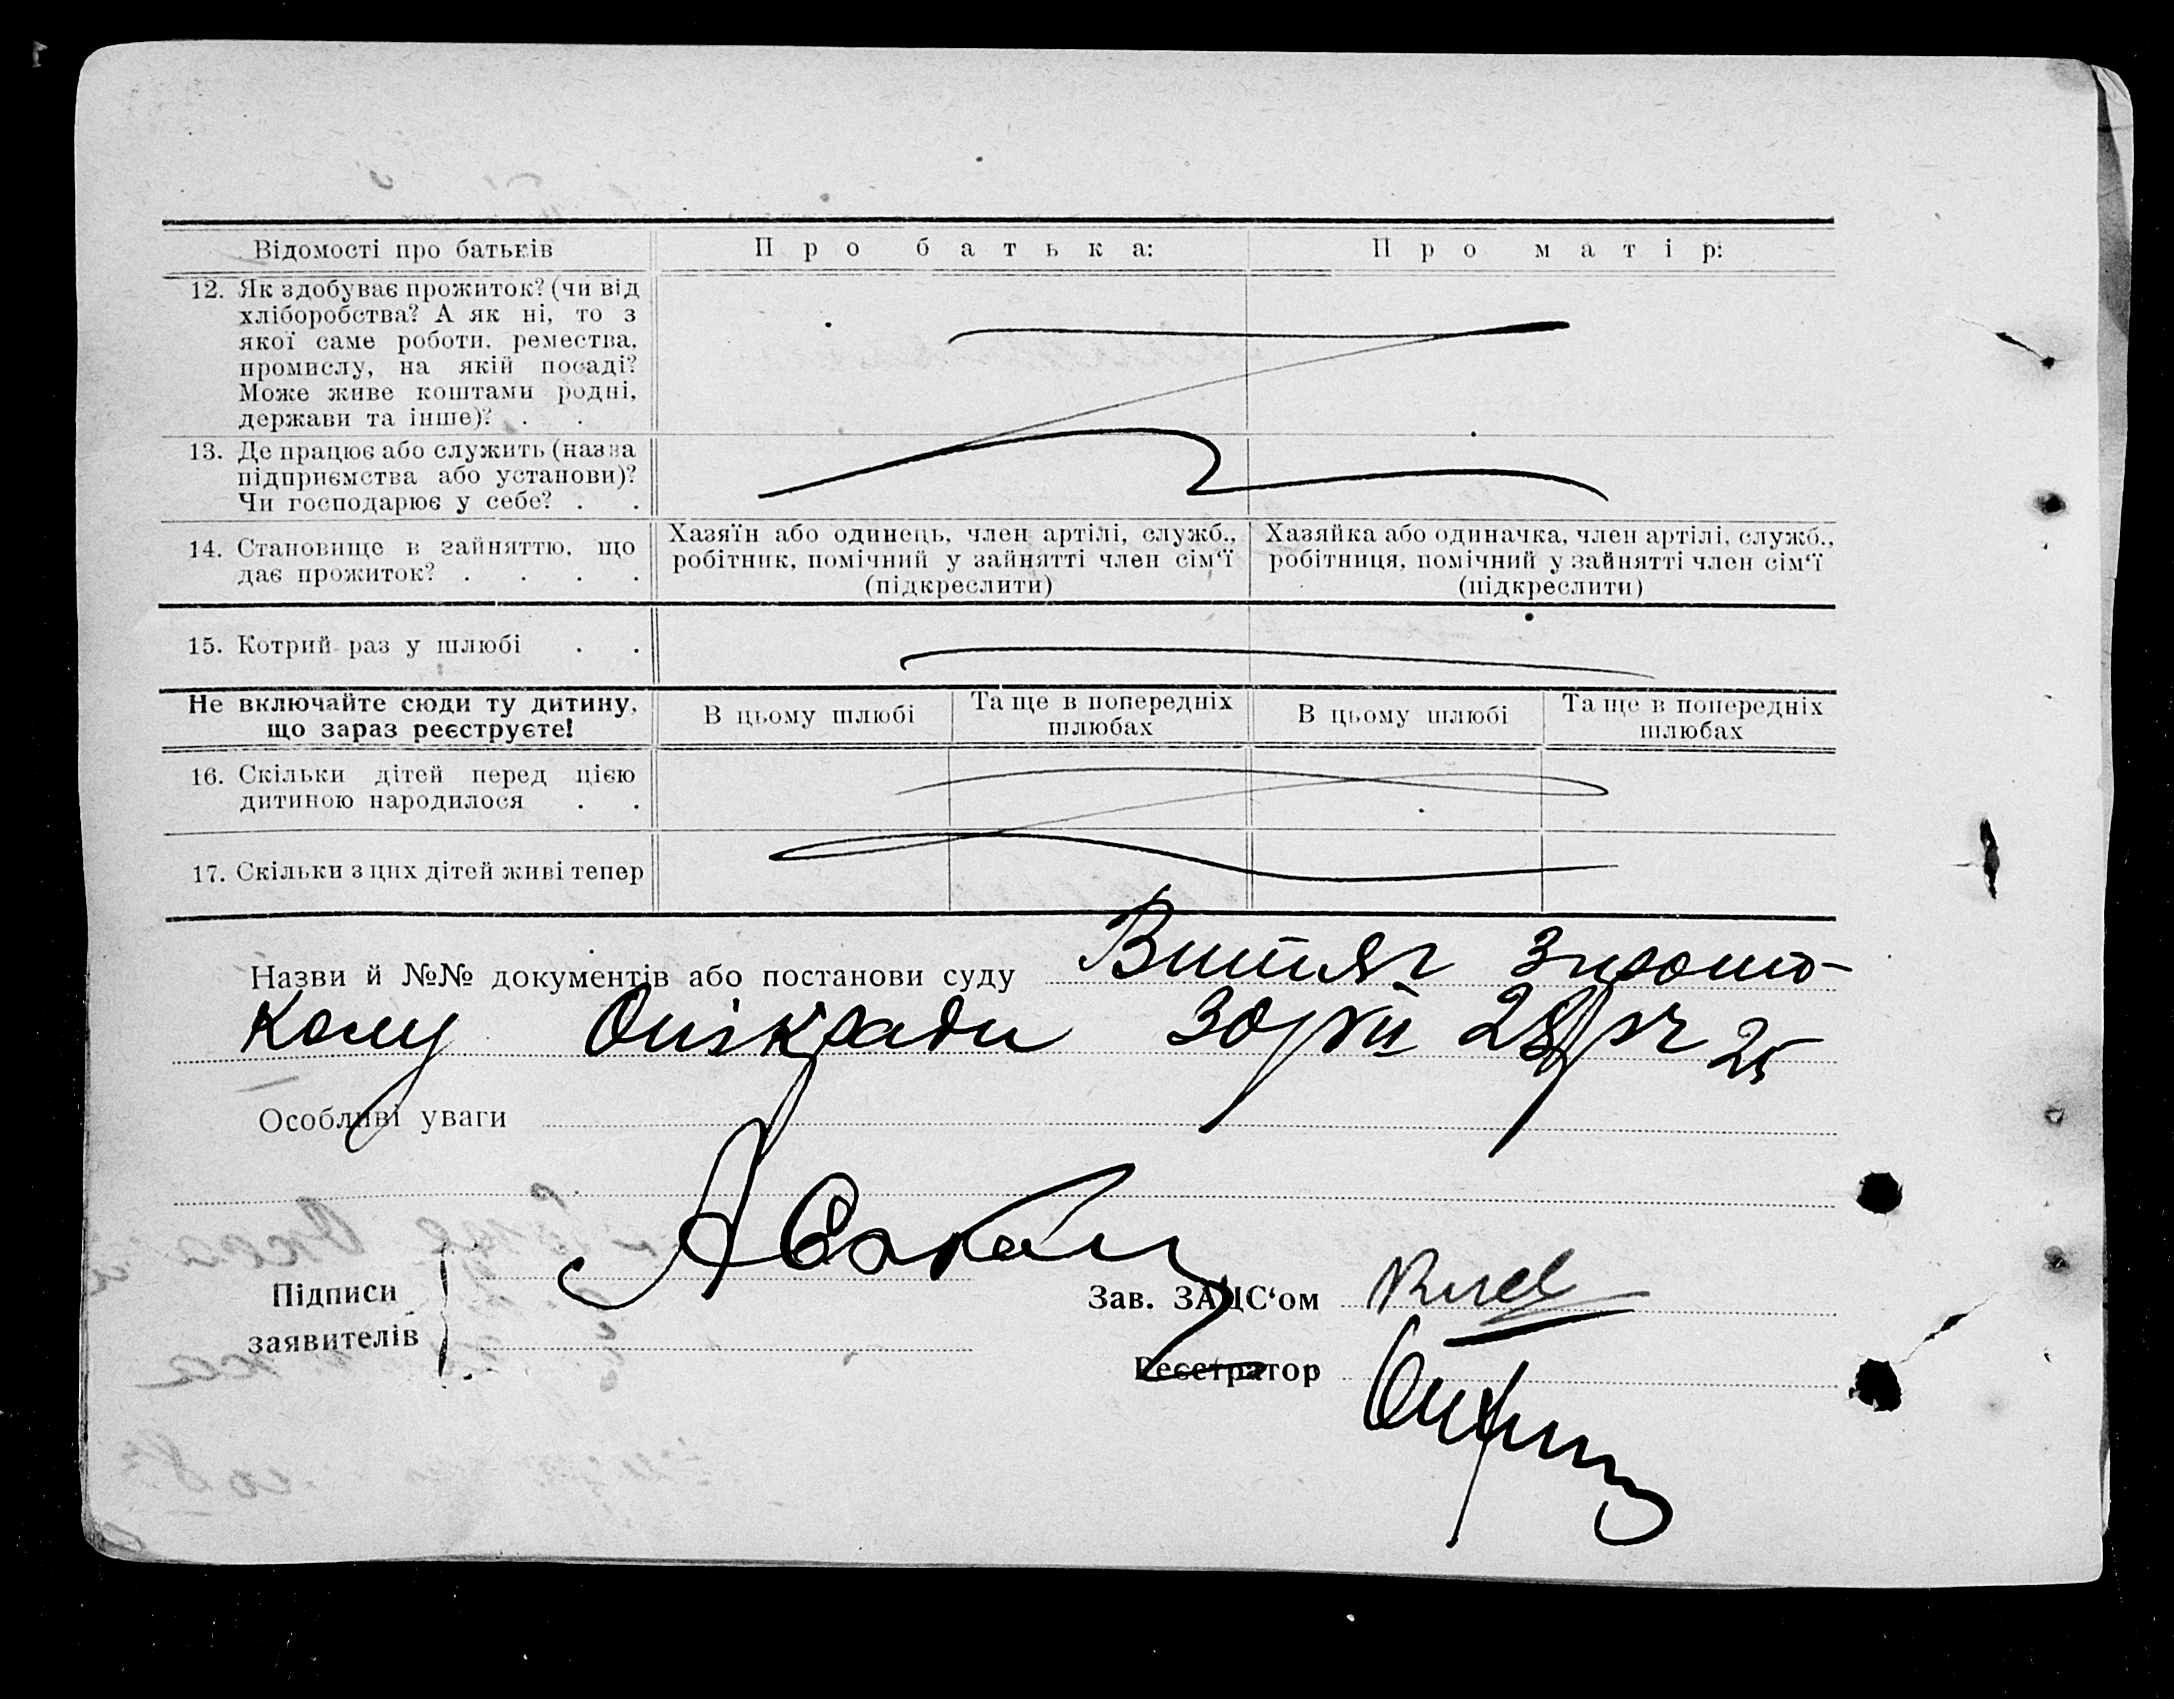 Відомості про батьків
Про батька:
Про матір:
12. Як здобуває прожиток? (чи від
хліборобства? А як ні, то з
якої саме роботи, ремества,
промислу, на якій посаді?
Може живе коштами родні,
держави та інше)? . .
13. Де працює або служить (назва
підприємства або установи)?
Чи господарює у себе? . .
14. Становище в зайняттю, що
дає прожиток? . . . .
Хазяїн або одинець, член артілі, служб.,
робітник, помічний у зайнятті член сім‘ї
(підкреслити)
Хазяйка або одиначка, член артілі, служб.,
робітниця, помічний у зайнятті член сім‘ї
(підкреслити)
15. Котрий раз у шлюбі . .
Не включайте сюди ту дитину,
що зараз реєструєте!
В цьому шлюбі
Та ще в попередніх
шлюбах
В цьому шлюбі
Та ще в попередніх
шлюбах
16. Скільки дітей перед цією
дитиною народилося . .
17. Скільки з цих дітей живі тепер
Назви й №№ документів або постанови суду Витяг з
30/VII 28 р ч 25
Особливі уваги
Підписи
заявителів
Зав. ЗАЦС‘ом
Реєстратор